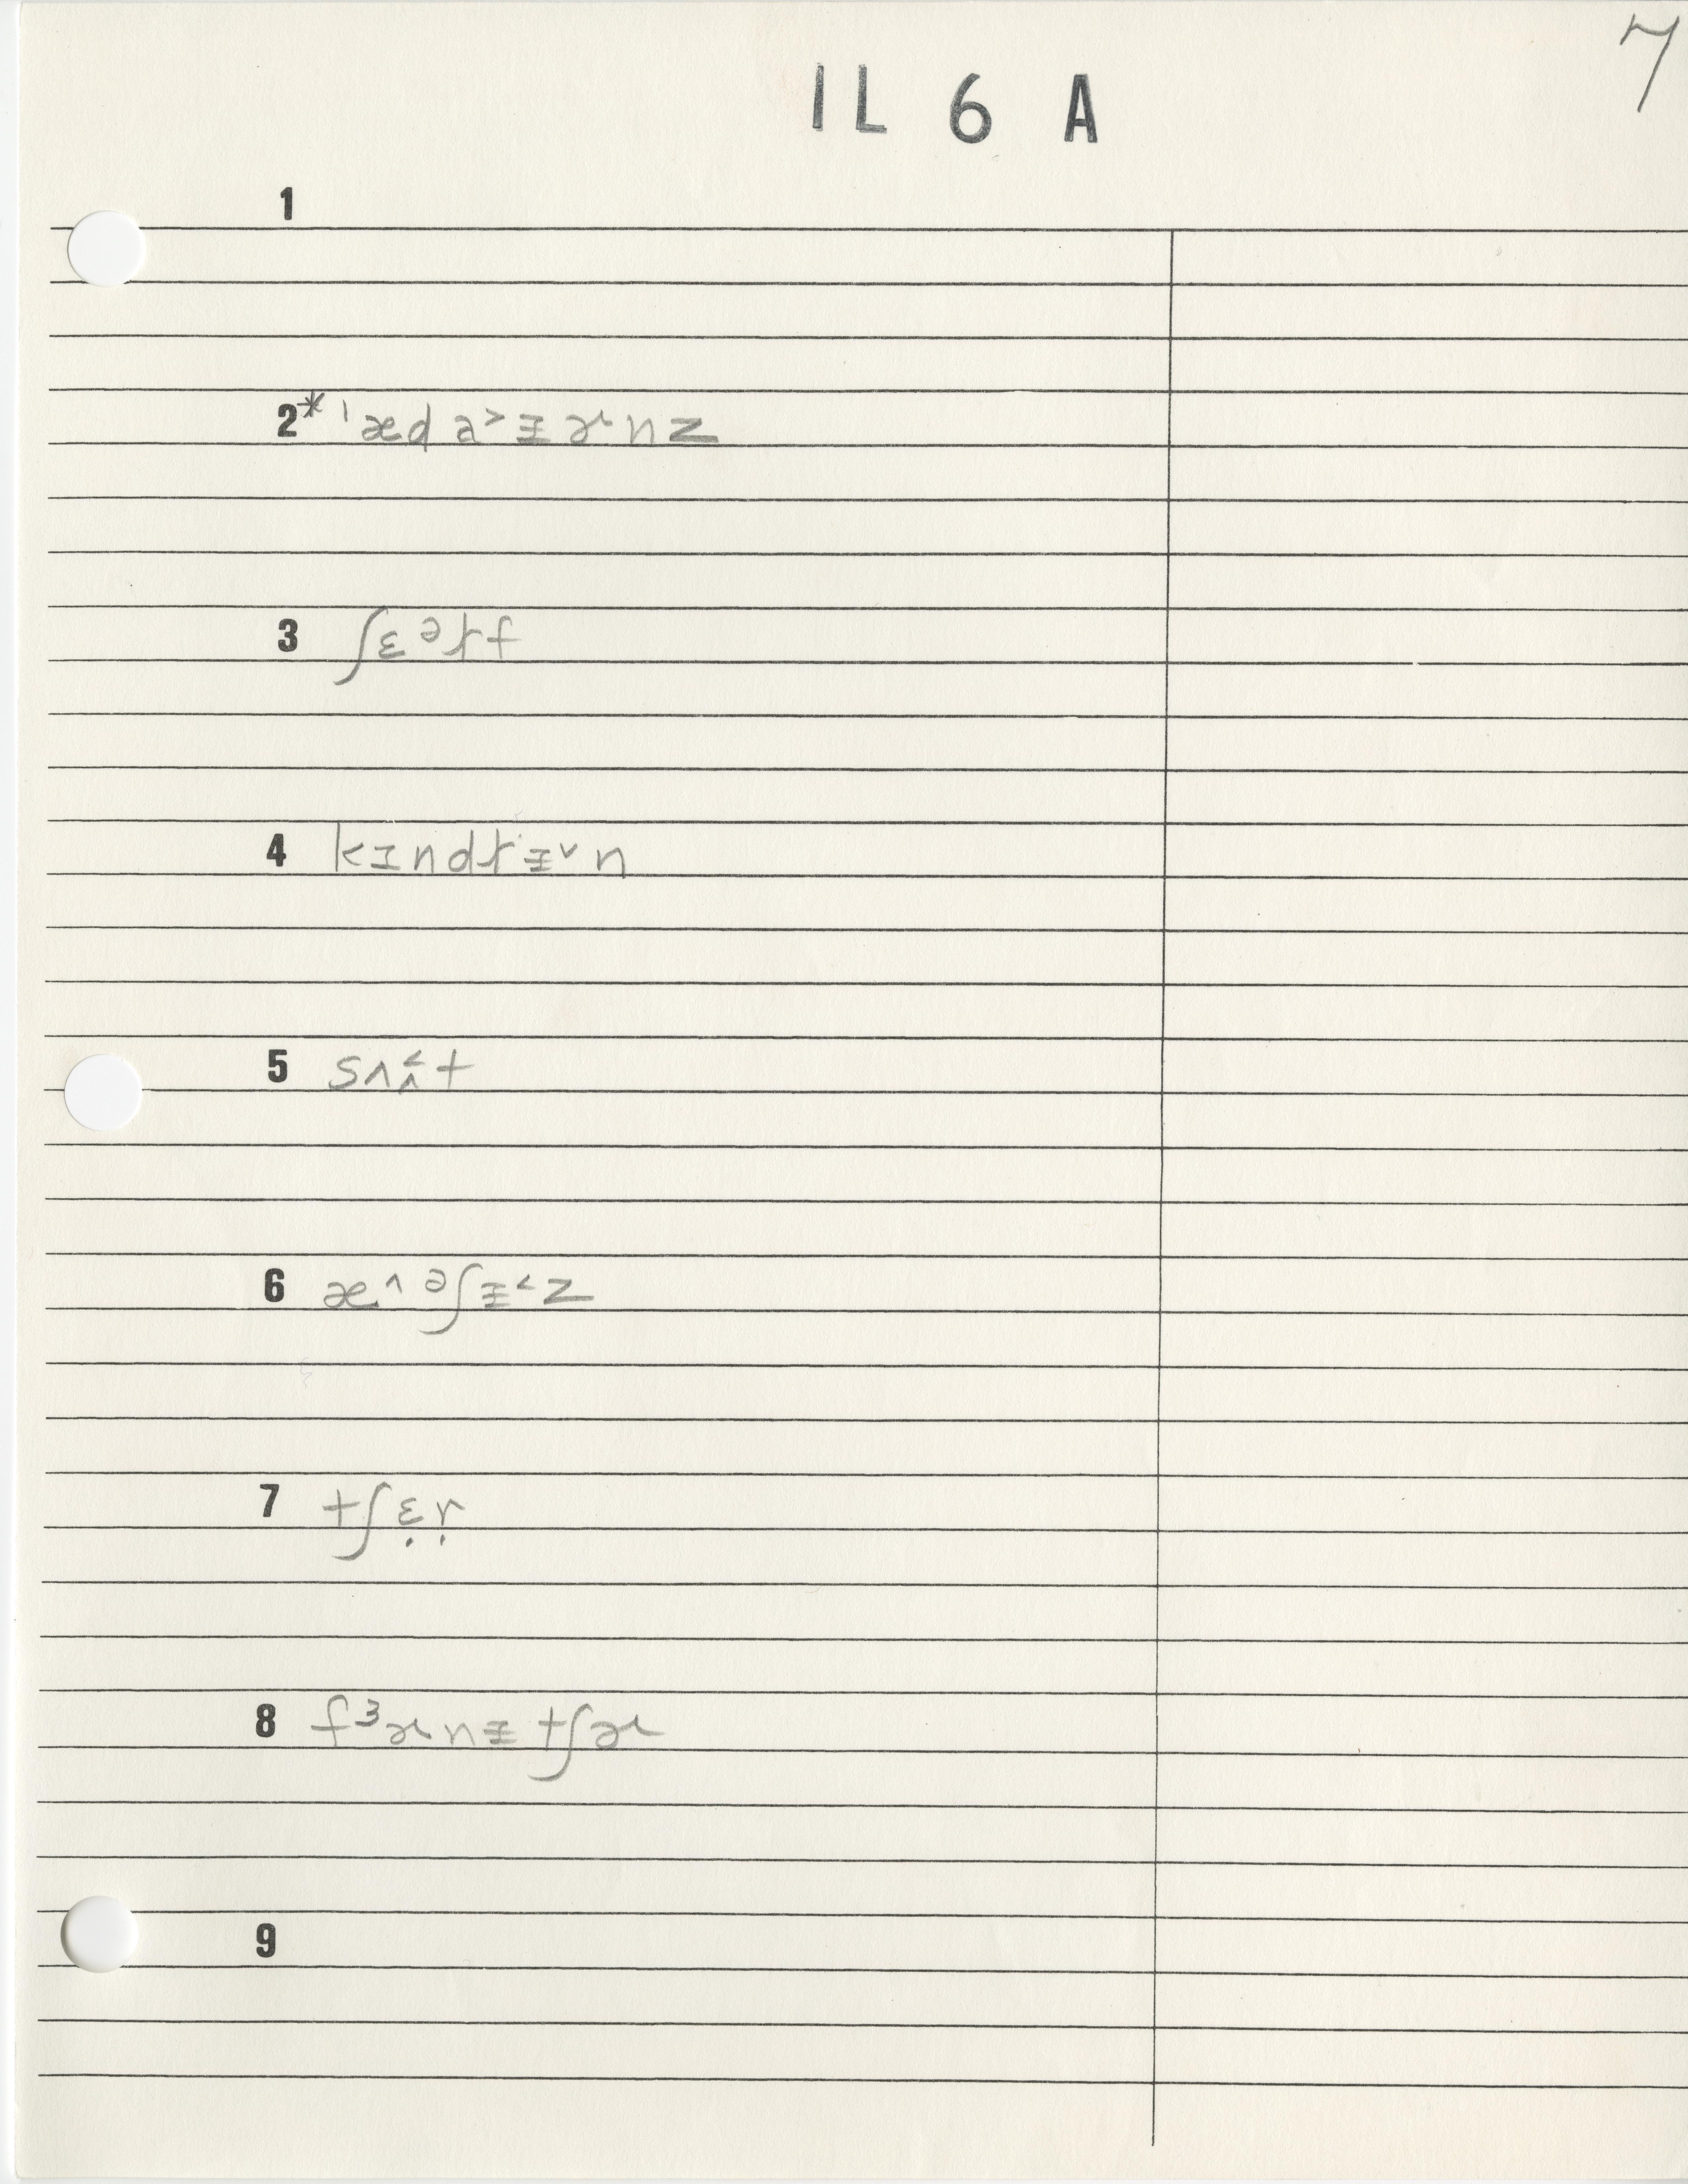 7
IL 6 A
1
2* ˈæd a˃ɪ̵ ɚ n z
3 ʃɛ ᵊɫf
4 kɪndɫɪ̵˅n
5 sʌʌ̭˂t
6 æ˄ᵊʃɪ̵˂z
7 tʃɛ̣ṛ
8 fᶟɚnɪ̵tʃɚ
9